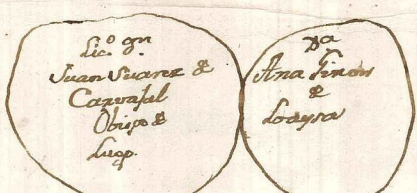 Lic.º gn
Juan Suarez &
Carvajal
Obispo &
Lugo.
Dª
Ana Giron
&
Loaysa